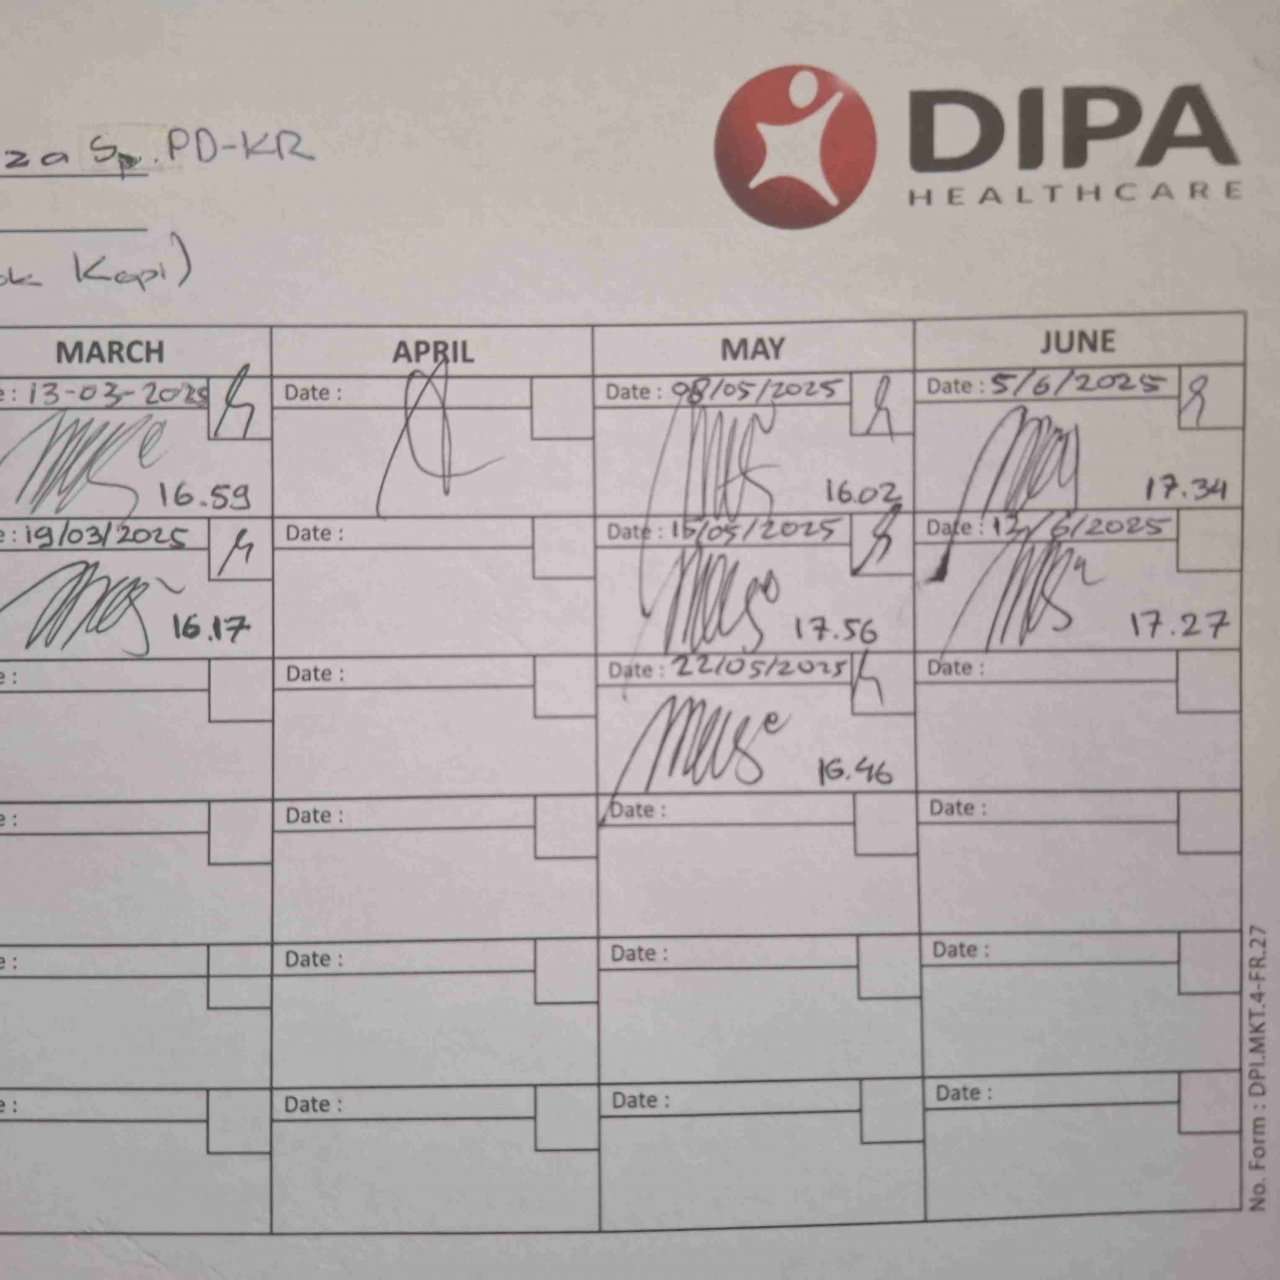 DIPA
HEALTHCARE
za Sp.PD-KR
ok Kopi)
MARCH APRIL MAY JUNE
e : 13-03-2025 Date : Date : 08/05/2025 Date : 5/6/2025
16.59 16.02 17.34
e : 19/03/2025 Date : Date : 15/05/2025 Date : 12/6/2025
16.17 17.56 17.27
e : Date : Date : 22/05/2025 Date :
16.46
e : Date : Date : Date :
e : Date : Date : Date :
e : Date : Date : Date :
No. Form : DPI.MKT.4-FR.27